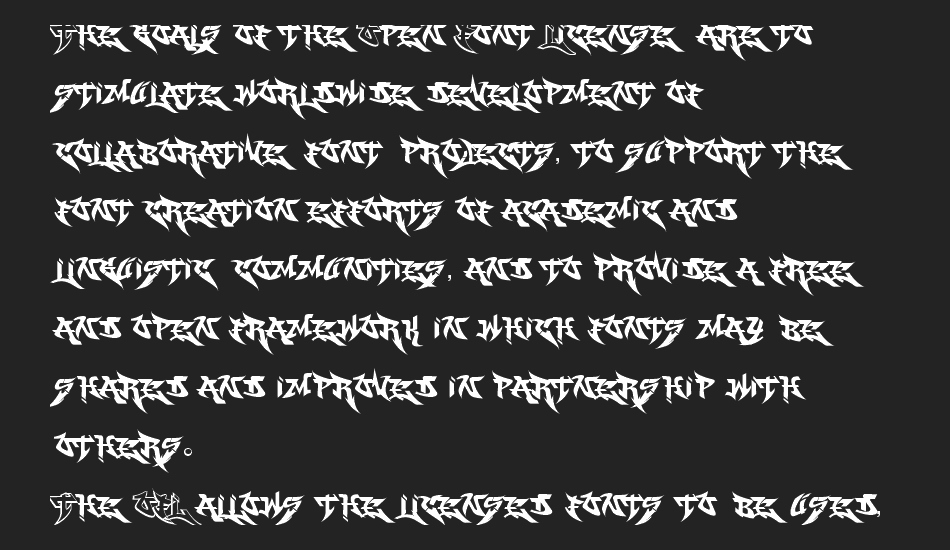 The goals of the Open Font License are to
stimulate worldwide development of
collaborative font projects, to support the
font creation efforts of academic and
linguistic communities, and to provide a free
and open framework in which fonts may be
shared and improved in partnership with
others.
The OFL allows the licensed fonts to be used,